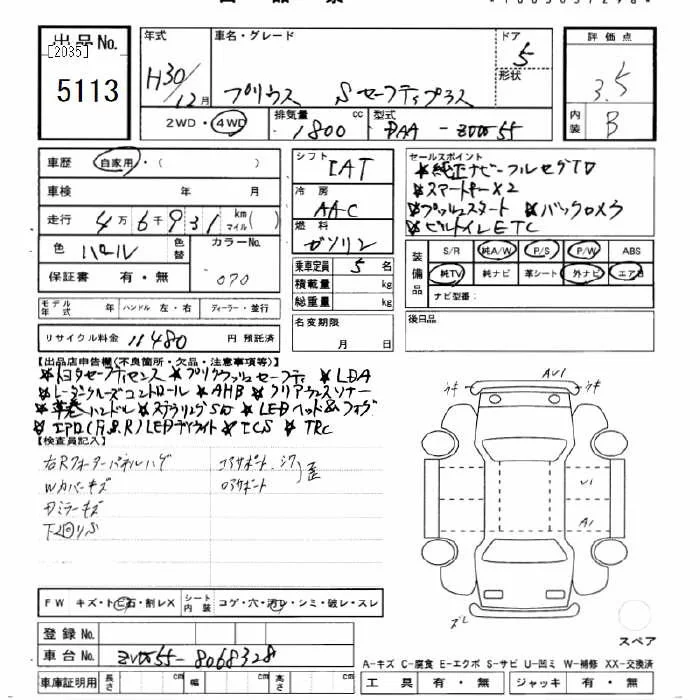 出品No.
[2035]
5113
年式
H30/12月
車名・グレード
プリウス Sセーフティプラス
ドア
5
形状
評価点
3.5
内装
B
2WD・4WD
排気量
1800 cc
型式
DAA-ZVW55
車歴 自家用・( )
車検 年 月
走行 4万6千931 km マイル( )
色 パール 色替
カラーNo.
070
保証書 有・無
シフト
IAT
冷房
AAC
燃料
ガソリン
乗車定員 5 名
積載量 kg
総重量 kg
セールスポイント
★純正ナビーフルセグTV
★スマートキーX2
★プッシュスタート ★バックカメラ
★ビルトインETC
装備品
S/R 純A/W P/S P/W ABS
純TV 純ナビ 革シート 外ナビ エアB
ナビ型番:
モデル年式 年 ハンドル 左・右 ディーラー・並行
リサイクル料金 11480 円 預託済
名変期限
月 日
後日品
【出品店申告欄(不良箇所・欠品・注意事項等)】
★トヨタセーフティセンス ★プリクラッシュセーフティ ★LDA
★レーダークルーズコントロール ★AHB ★クリアランスソナー
★革巻ハンドル ★ステアリングSW ★LEDヘッド&フォグ
★LEDデイライト ★TRC
【検査員記入】
右Rクォーターパネルハゲ
Wカバーキズ
ミラーキズ
下回りS
コアサポート
ロアサポート
歪
AU1
ウキ
ウキ
U1
A1
ズレ
スペア
FW キズ・ト・ヒ石・割レX
シート内装 コゲ・穴・汚レ・シミ・破レ・スレ
登録No.
車台No. ZVW55-8068328
車庫証明用 長さ cm 幅 cm 高さ cm
A-キズ C-腐食 E-エクボ S-サビ U-凹ミ W-補修 XX-交換済
工具 有・無 ジャッキ 有・無